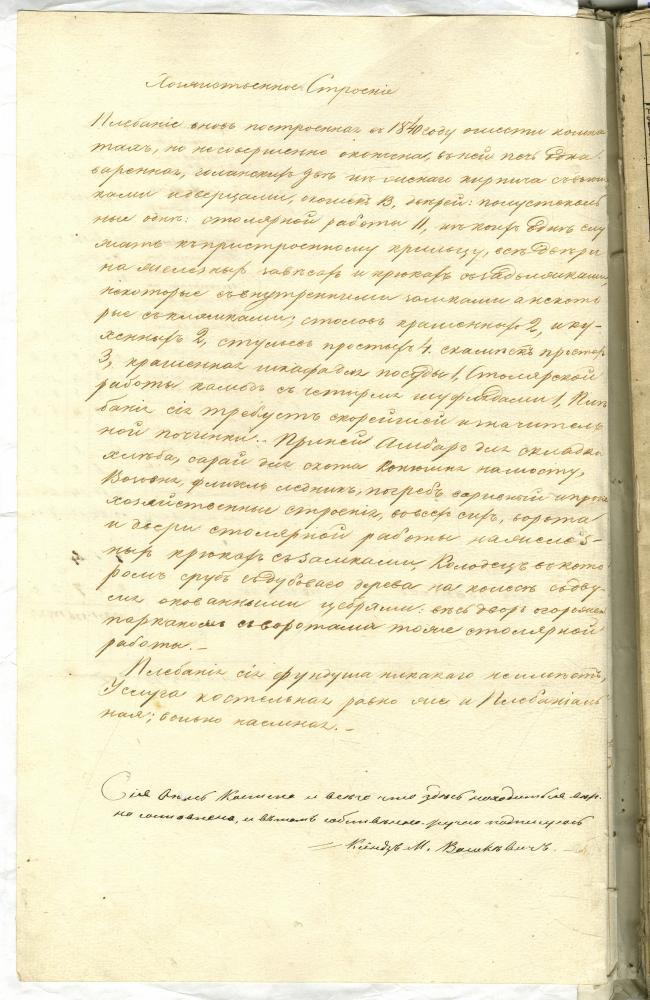 Хозяйственное Строеніе
Плебаніе вновь построенная въ 1840 году о шести комна
тахъ, но несовершенно окончена, въ ней печь
варенная, голанскихъ двѣ изъ кирпича съ
ками и дверцами, окошекъ 13, дверей: полустеколь
ные однѣ: столярной работы 11, изъ коихъ однѣ слу
жатъ къ пристроенному крыльцу, всѣ двери
на желѣзныхъ завѣсахъ и крюкахъ съ
некоторые съ внутренними замками а некото
рые съ клямками, столовъ крашенныхъ 2, и ку-
хенныхъ 2, стульевъ простыхъ 4. скамеекъ простыхъ
3, крашенная шкафа для посуды 1, Столярской
работы камодъ съ четырмя шуфлядами 1, Пле
баніе сіе требуетъ скорейшей и значитель
ной починки. - При ней Амбаръ для складки
хлѣба, сарай для скота Конюшня на мосту,
Возовня, флигель ледникъ, погребъ и проч.
хозяйственные строенія, во всехъ сихъ, ворота
и двери столярной работы на желѣз-
ныхъ крюкахъ съ замками, Колодецъ въ кото
ромъ срубъ съ дубоваго дерева на колесѣ съ дву
мя окованными цебрями: весь дворъ огороженъ
парканомъ съ воротами тоже столярной
работы. -
Плебанія сія фундуша никакаго не имѣетъ,
Услуга костельная равно же и Плебаніаль
ная; вольно наемная. -
Сія опись Костела и всего что здѣсь находиться вѣр-
но составлена, и въ томъ собственно-ручно подписуюсь
Ксіендзъ М. Вашкѣвичъ.